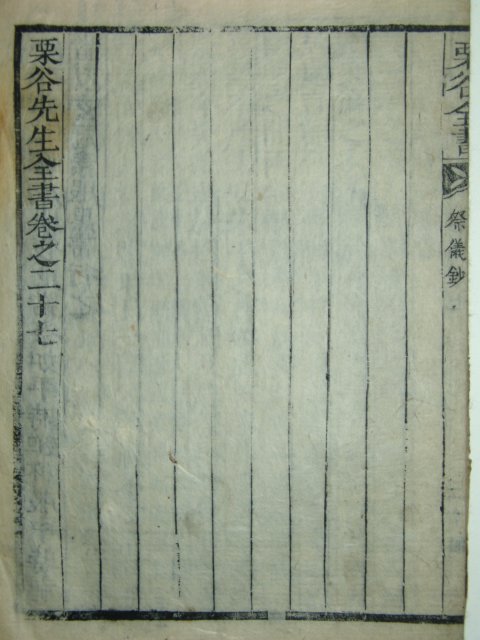 栗谷全書
祭儀鈔
栗谷先生全書卷之二十七